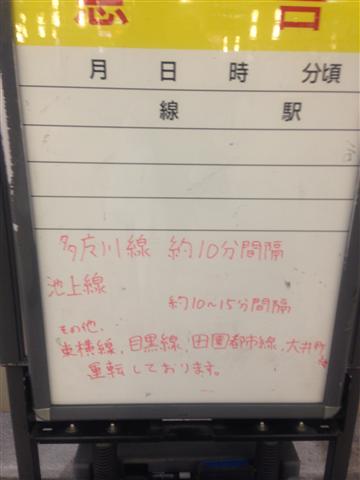 急告
月 日 時 分頃
線 駅
多摩川線 約10分間隔
池上線
約10~15分間隔
その他、
東横線、目黒線、田園都市線、大井町線
運転しております。